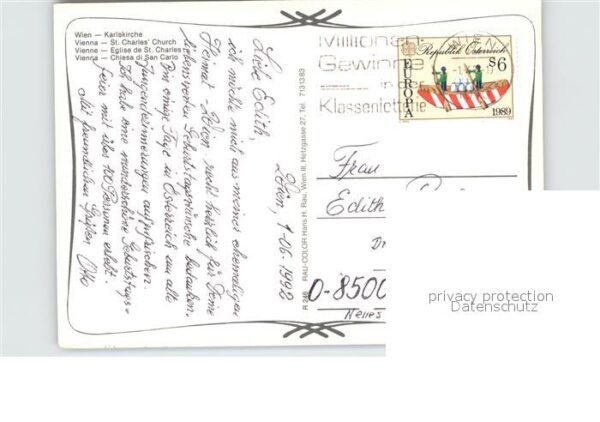 Wien – Karlskirche
Vienna – St. Charles' Church
Vienne – Eglise de St. Charles
Vienna – Chiesa di San Carlo
Wien, 1-06-1992
Liebe Edith,
ich möchte mich aus meiner ehemaligen
Heimat - Wien recht herzlich für Deine
liebenswerten Geburtstagswünsche bedanken.
Bin einige Tage in Österreich um alte
Jugenderinnerungen aufzufrischen.
Ich habe eine wunderschöne Geburtstags-
feier mit über 100 Personen erlebt.
Mit freundlichen Grüßen Otto
R 246 RAU-COLOR Hans H. Rau, Wien III, Hetzgasse 27, Tel. 7131383
Millionen-
Gewinne
in der
Klassenlotterie
Republik Österreich
EUROPA
S6
1989
Frau
Edith
D-8500
Neues
privacy protection
Datenschutz